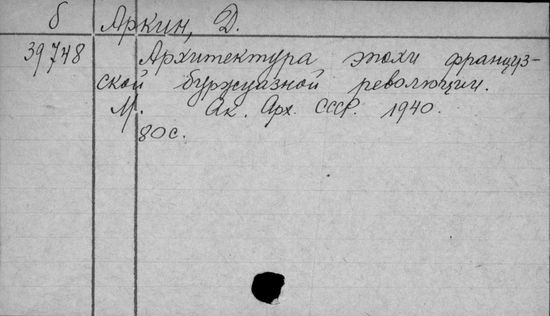 б Аркин, Д.
39748 Архитектура эпохи француз-
ской буржуазной революции.
М. Ак. Арх. СССР. 1940.
80 с.